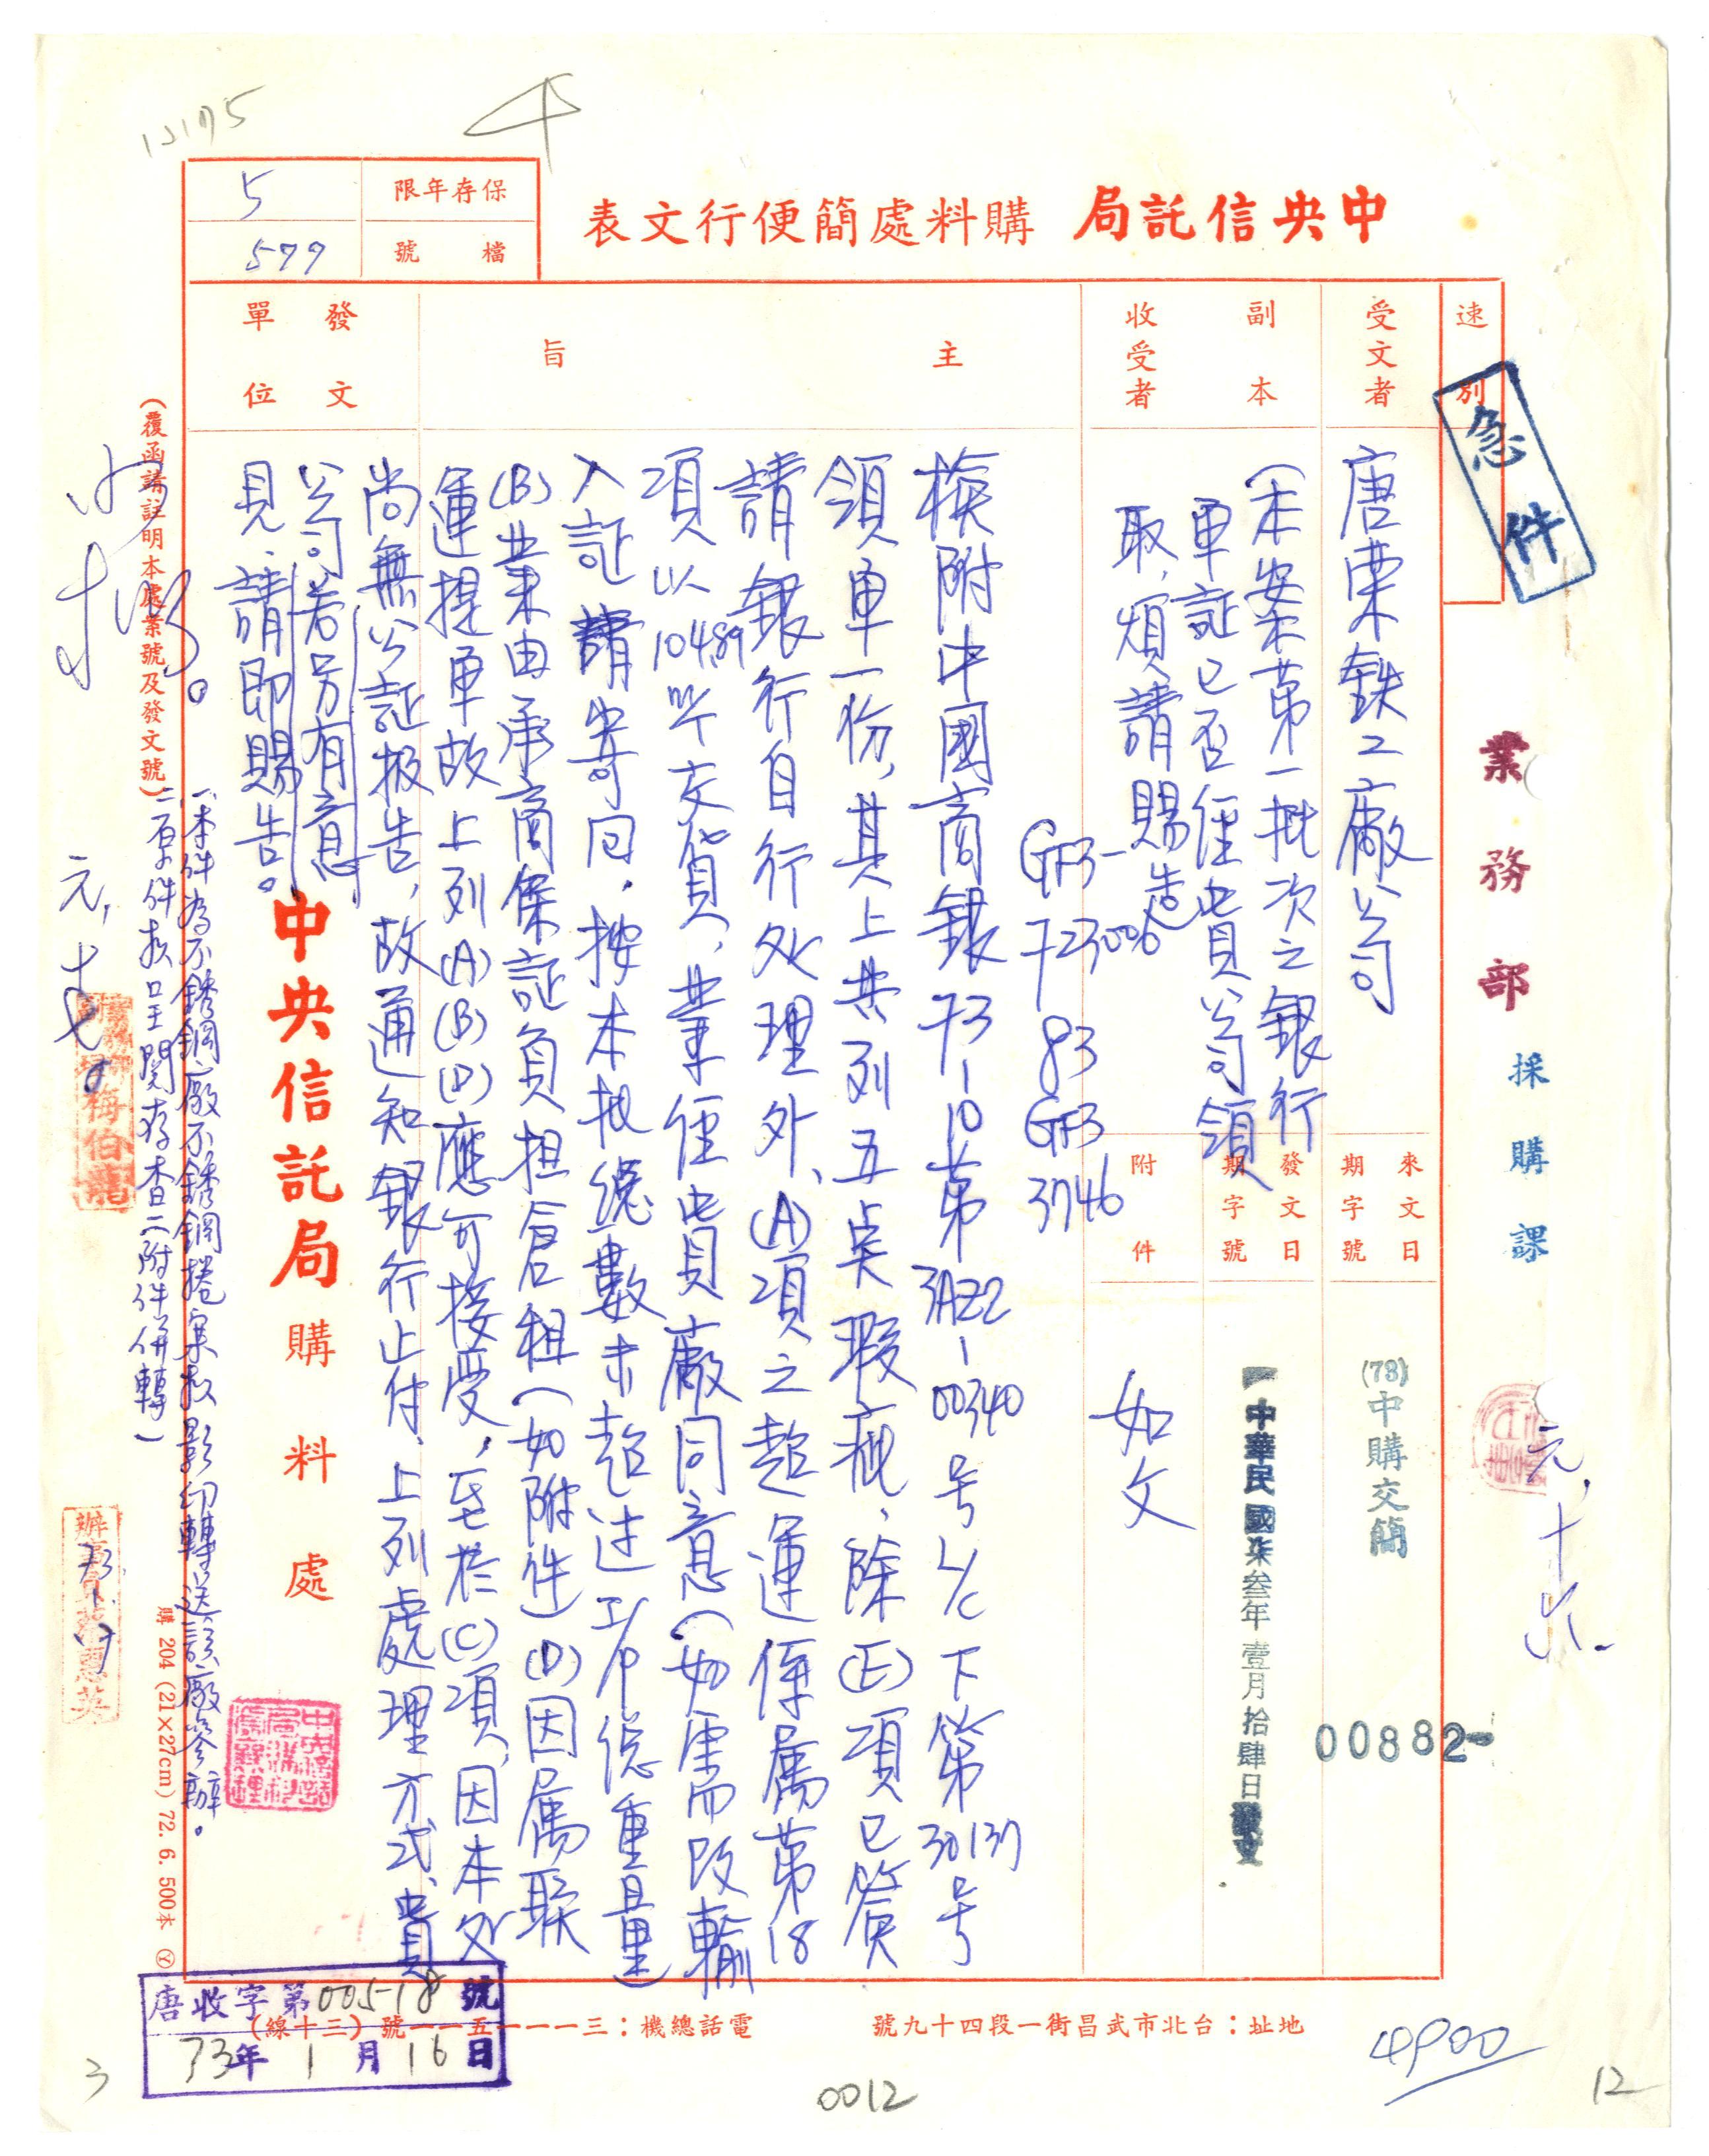 12175
5
577
保存年限
檔號
中央信託局 購料處簡便行文表
速別
急件
受文者
副本收受者
主旨
發文單位
唐栄鉄工廠公司
(本案第一批次之銀行
單証已否經貴公司領
取,煩請賜告
GF3-
723006
83
GF3
3746
來文日期字號
發文日期字號
附件
(73)中購交簡
00882-
中華民國柒叁年壹月拾肆日發文
如文
検附中國商銀73-10第3AZ2-00340号L/C下第30137号
領單一份,其上共列五点瑕疵、除(E)項已簽
請銀行自行处理外、(A)項之超運係屬第18
項以10489吽交貨,業經貴廠同意(如需而改輸
入証請寄回.按本批總數未超过I/P總重量)
(B)業末由承商保証負担倉租(如附件)(D)因属聯
運提單故上列(A)(B)(D)應可接受,至於(C)項,因本处
尚無公証报告,故通知銀行止付、上列處理方式、貴
公司若另有意
見、請即賜告。
中央信託局購料處
(覆函請註明本處案號及發文號)
一本件為不銹鋼廠不銹鋼捲案擬影印轉送該廠簽辦。
二原件擬呈閱存查(附件併轉)
業務部
採購課
元,十六.
梅伯龍
購 204 (21×27cm) 72. 6. 500本 Ⓨ
唐收字第005-18號
73年1月16日
地址:台北市武昌街一段四十九號
電話總機:三一一一五一一號(三十線)
4900
3
0012
12